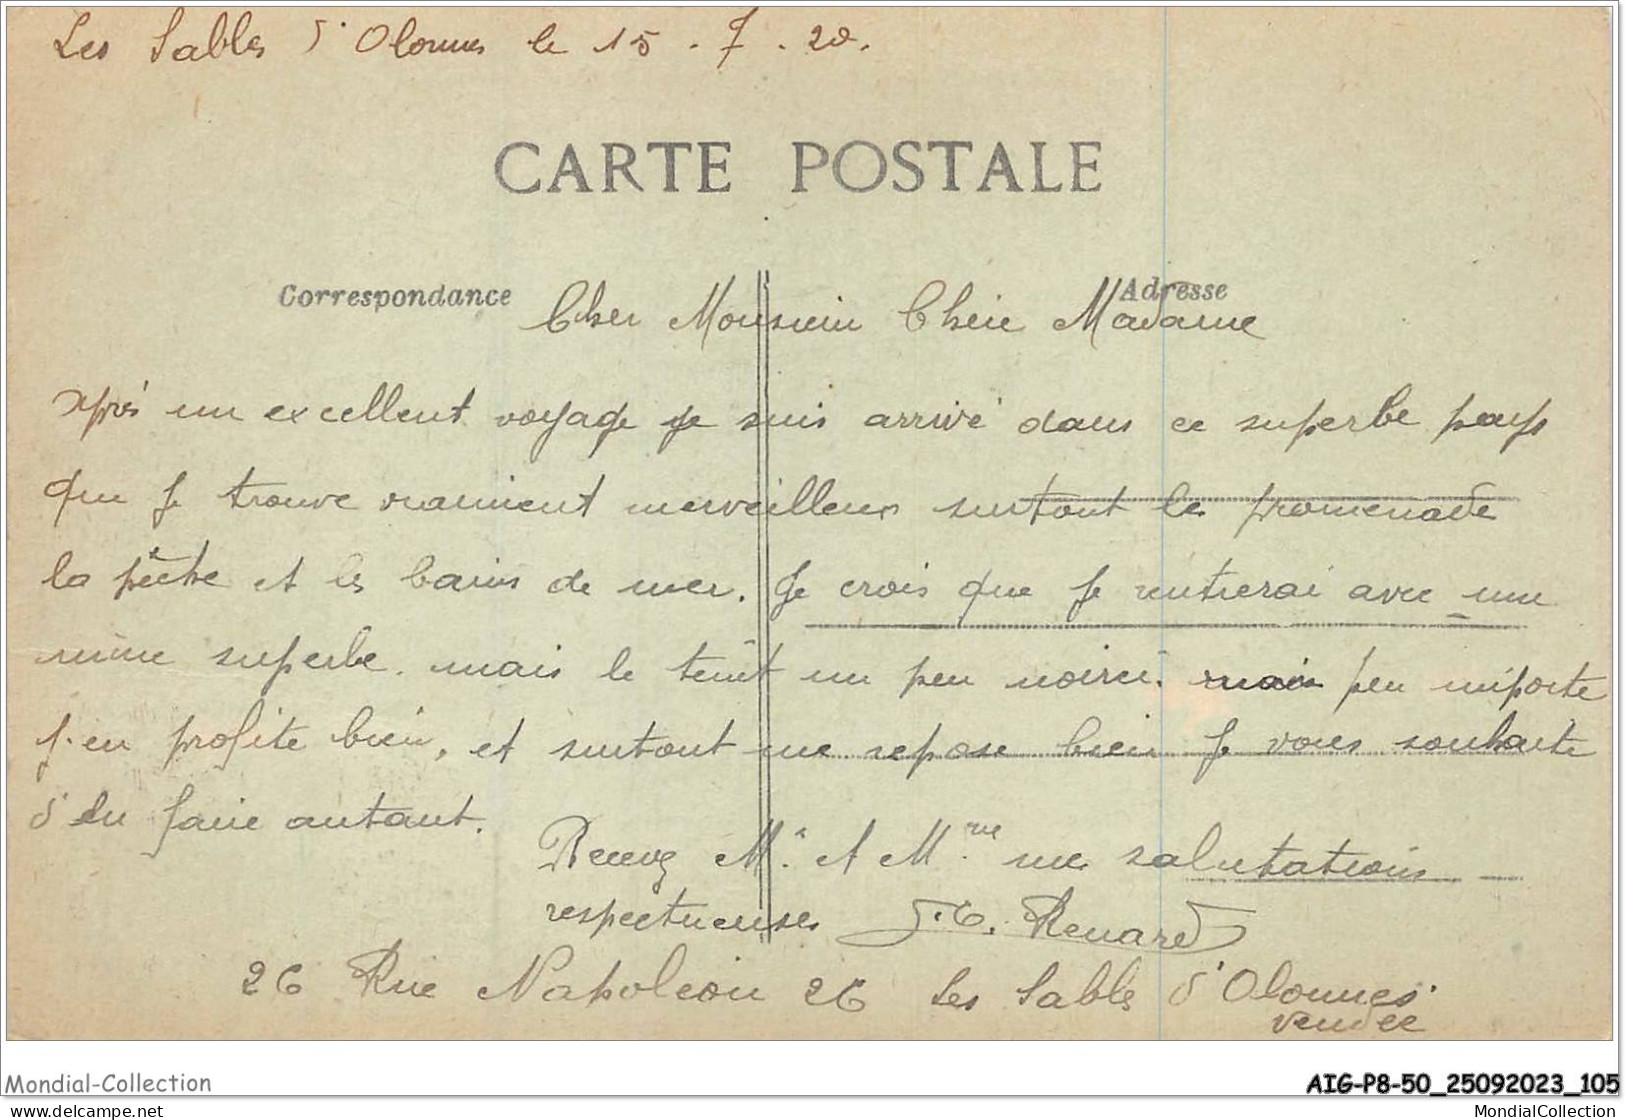 Les Sables d'Olonnes le 15.7.20.
CARTE POSTALE
Correspondance
Adresse
Cher Monsieur Chère Madame
Après un excellent voyage je suis arrivé dans ce superbe pays
que je trouve vraiment merveilleux surtout les promenade
la pêche et les bains de mer. Je crois que je rentrerai avec une
mine superbe. mais le teint un peu noirci. mais peu importe
j'en profite bien, et surtout me repose bien Je vous souhaite
d'en faire autant.
Recevez Mr. et Mme mes salutations
respectueuses J.C. Renard
26 Rue Napoléon 26 Les Sables d'Olonnes.
Vendée
Mondial-Collection
AIG-P8-50_25092023_105
www.delcampe.net
MondialCollection